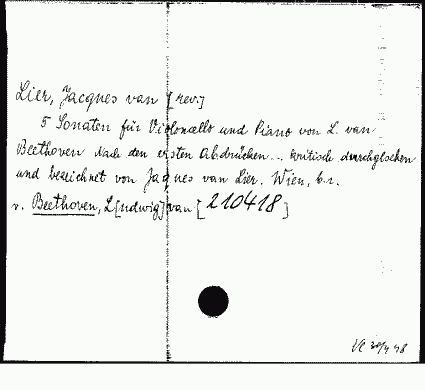 Lier, Jacques van [rev.]
5 Sonaten für Violoncello und Piano von L. van
Beethoven Nach den ersten Abdrücken... kritisch durchgesehen
und bezeichnet von Jaques van Lier. Wien,
v. Beethoven, L[udwig] van [210418]